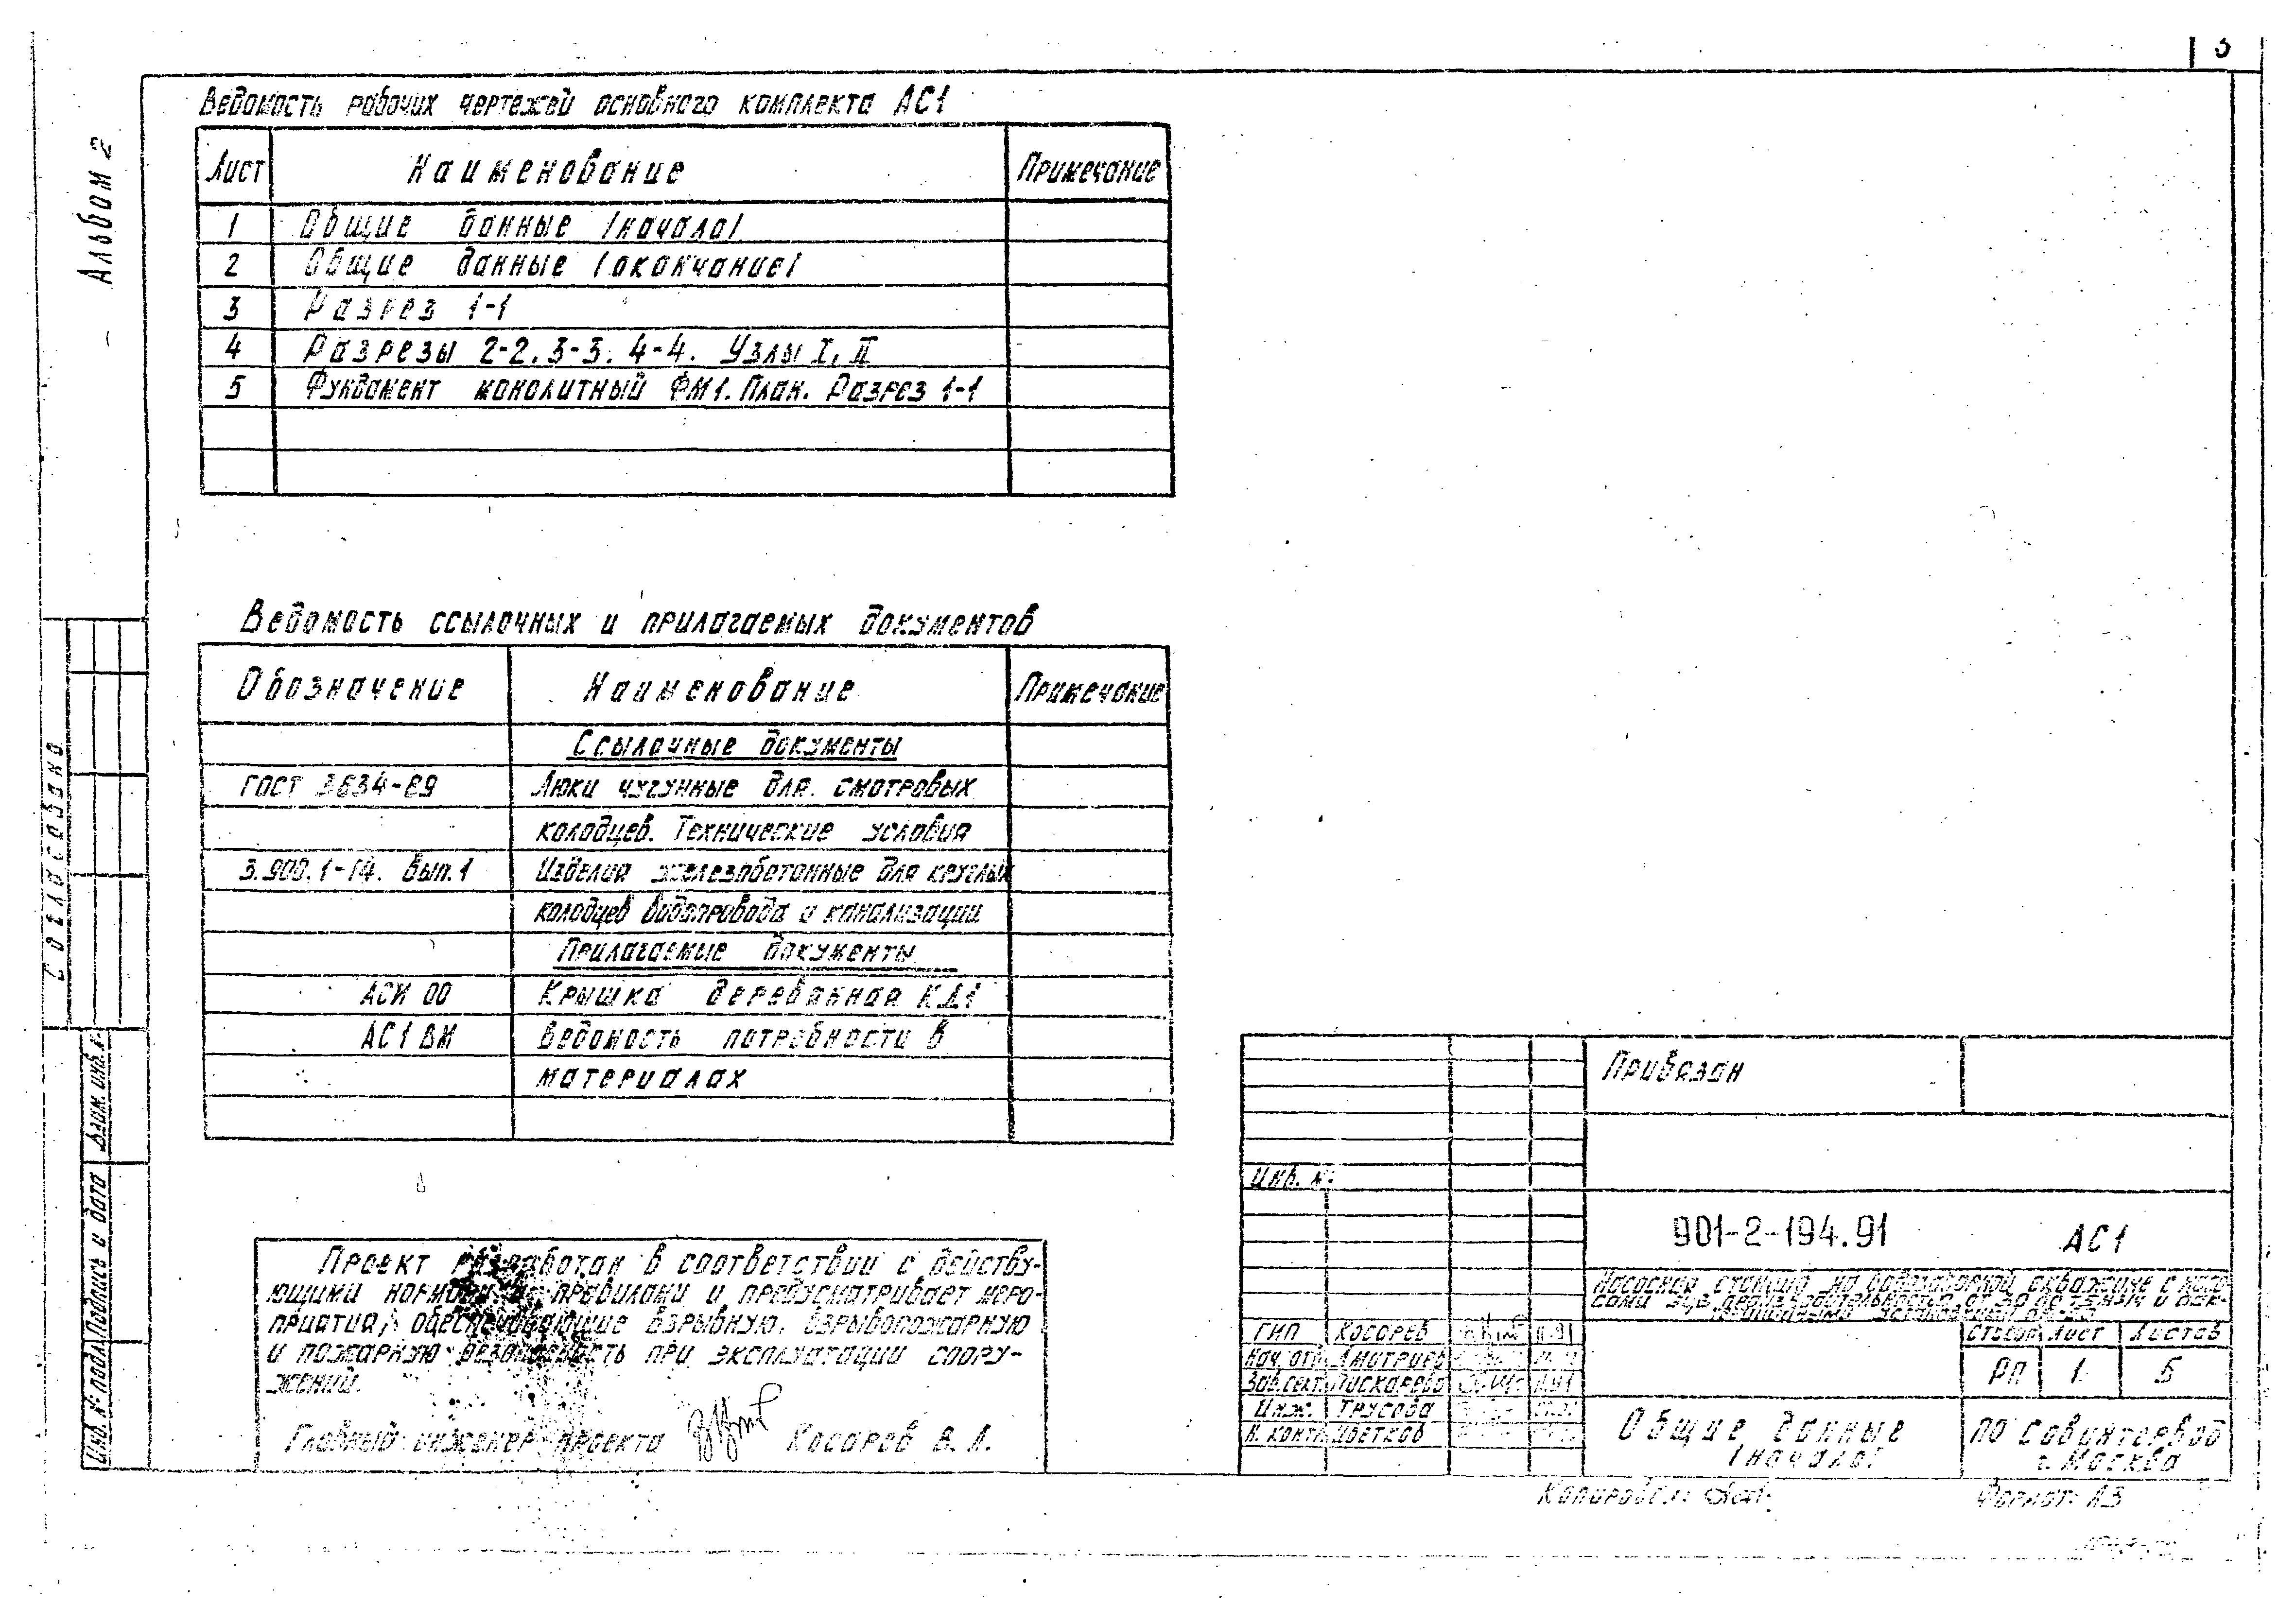 3
Альбом 2
Ведомость рабочих чертежей основного комплекта АС1
Лист Наименование Примечание
1 Общие данные /начало/
2 Общие данные /окончание/
3 Разрез 1-1
4 Разрезы 2-2. 3-3. 4-4. Узлы I, II
5 Фундамент монолитный ФМ1. План. Разрез 1-1
Ведомость ссылочных и прилагаемых документов
Обозначение Наименование Примечание
Ссылочные документы
ГОСТ 3634-89 Люки чугунные для смотровых
колодцев. Технические условия
3.900.1-14. Вып.1 Изделия железобетонные для круглых
колодцев водопровода и канализации
Прилагаемые документы
АСИ 00 Крышка деревянная КД1
АС1 ВМ Ведомость потребности в
материалах
Проект разработан в соответствии с действу-
ющими нормами и правилами и предусматривает меро-
приятия, обеспечивающие взрывную, взрывопожарную
и пожарную безопасность при эксплуатации соору-
жений.
Главный инженер проекта Косарев В. А.
Согласовано
Взам. инв. №
Подпись и дата
Инв. № подл.
Привязан
Инв. №
901-2-194.91 АС1
Насосная станция на водозаборной скважине с насо-
сами ЭЦВ производительностью от
ГИП Косарев
Нач. отд. Дмитриев
Зав. сект. Пискарева
Инж. Трусова
Н. конт. Цветков
Стадия Лист Листов
РП 1 5
Общие данные
/начало/
ПО Совинтервод
г. Москва
Копировал:
Формат: А3